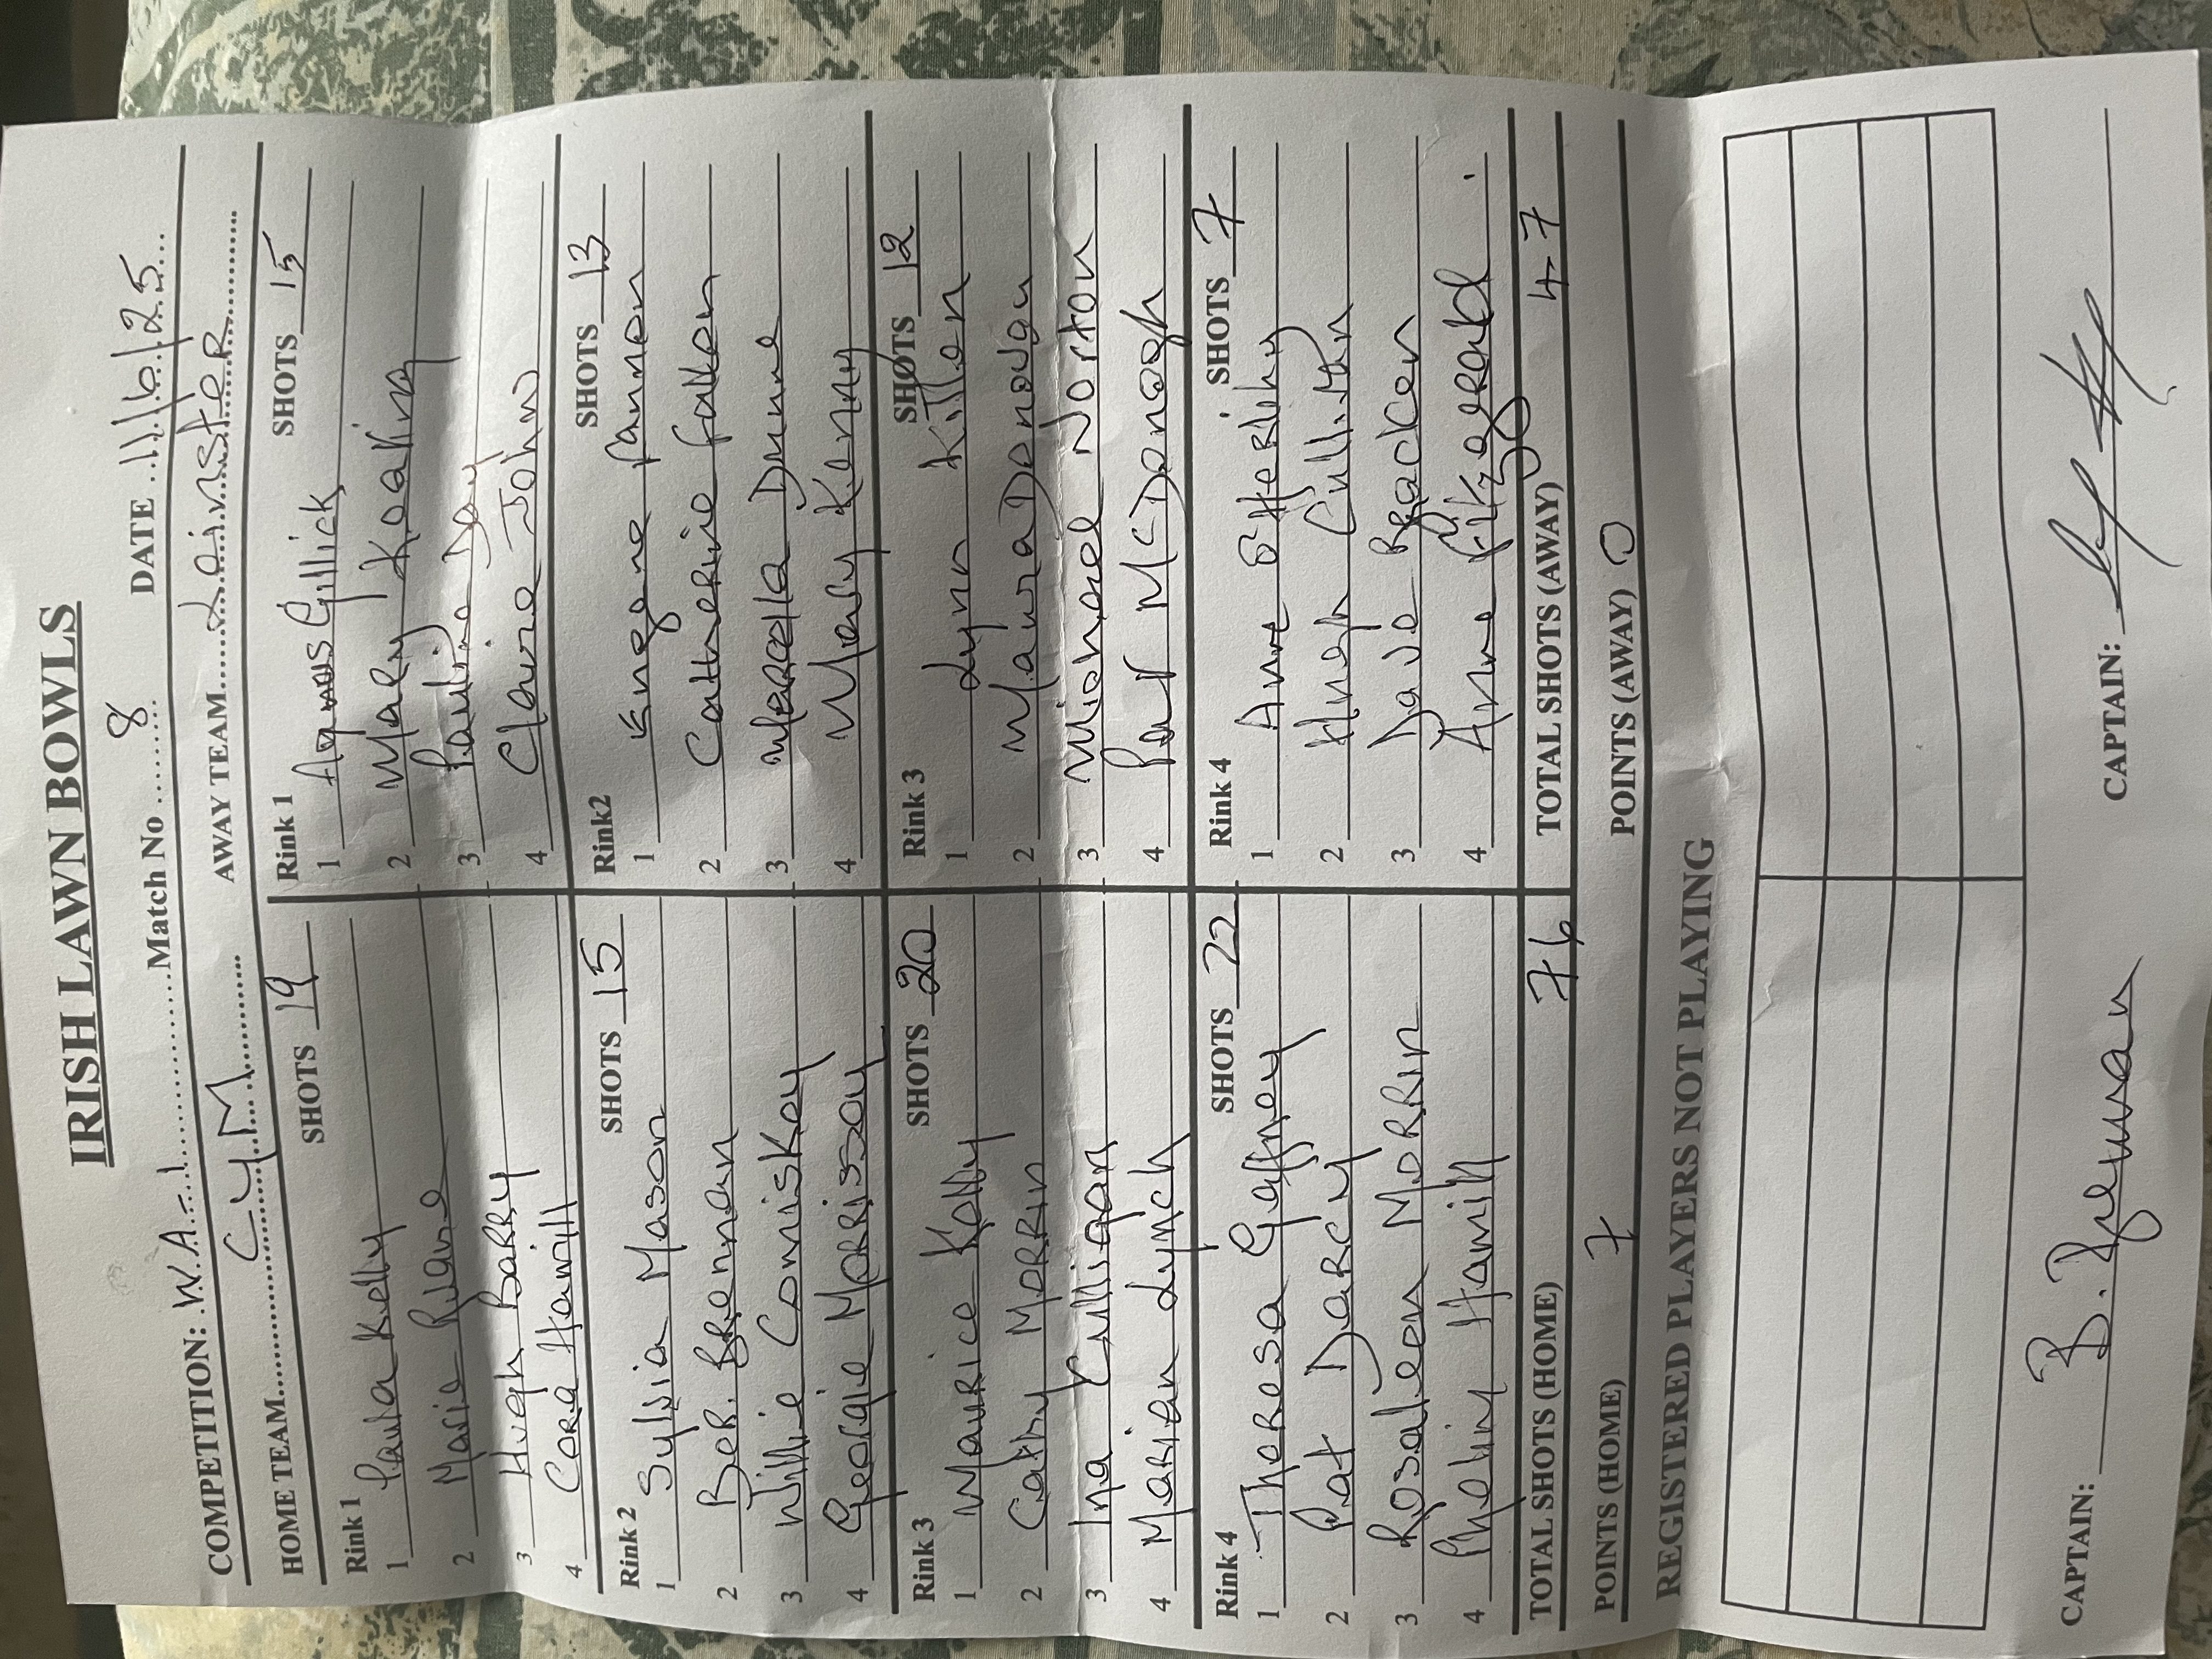 IRISH LAWN BOWLS
COMPETITION: W.A-1 Match No 8 DATE 11/6/25
HOME TEAM C.Y.M AWAY TEAM Leinster
Rink 1 SHOTS 19
1 Paula Kelly
2 Marie Ruane
3 Hugh Barry
4 Cera Hamill
Rink 1 SHOTS 15
1 Agnus Gillick
2 Mary Keating
3 Pauline Day
4 Claire John
Rink 2 SHOTS 15
1 Sylvia Mason
2 Ber. Brennan
3 Willie Commiskey
4 Georgie Morrissey
Rink2 SHOTS 13
1 Eugene Fannen
2 Catherine Fallen
3 Marcella Dunne
4 Mary Kenny
Rink 3 SHOTS 20
1 Maurice Kelly
2 Cathy Morrin
3 Ina Culligan
4 Marian Lynch
Rink 3 SHOTS 12
1 Lynn Killen
2 Maura Donough
3 Michael Norton
4 Paul McDonagh
Rink 4 SHOTS 22
1 Theresa Gaffney
2 Pat Darcy
3 Rosaleen Morrin
4 Phelim Hamill
Rink 4 SHOTS 7
1 Anne O'Herlihy
2 Hugh
3 Dave Bracken
4 Anne Fitzgerald
TOTAL SHOTS (HOME) 76 TOTAL SHOTS (AWAY) 47
POINTS (HOME) 7 POINTS (AWAY) 0
REGISTERED PLAYERS NOT PLAYING
CAPTAIN: B. CAPTAIN: